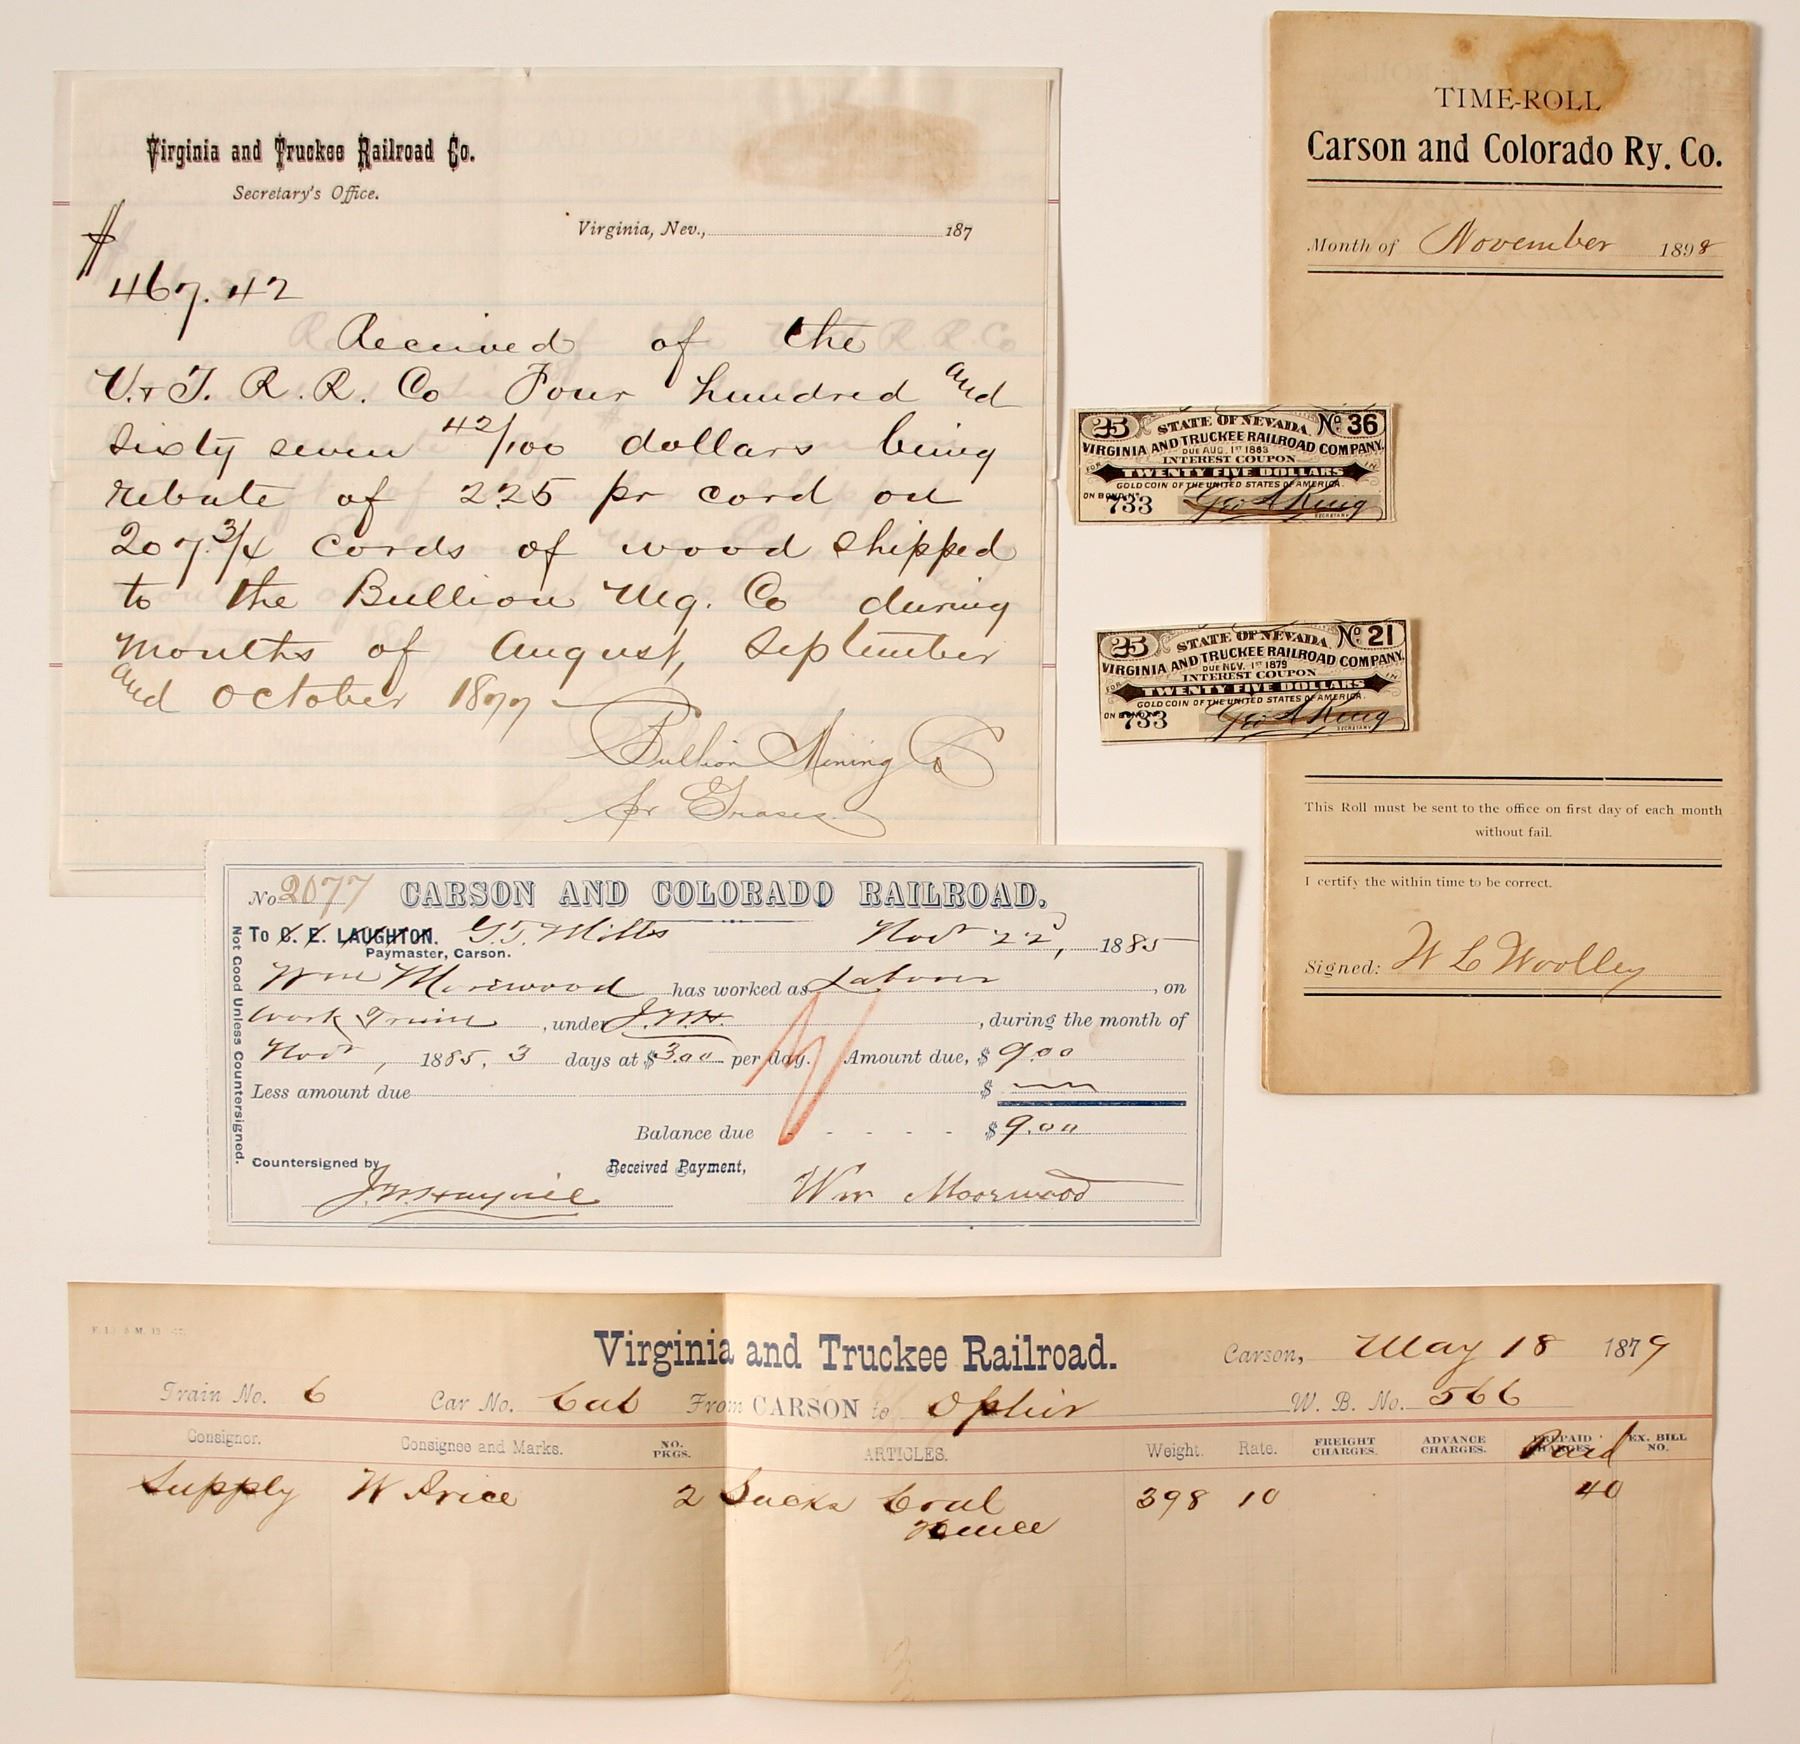 Virginia and Truckee Railroad Co.
Secretary's Office.
Virginia, Nev., 187
$
467.42
Received of the
V. & T. R. R. Co Four hundred and
sixty seven 42/100 dollars being
rebate of 2.25 pr cord on
207 3/4 cords of wood shipped
to the Bullion Mg. Co during
months of August, September
and October 1877
Bullion Mining Co
pr
TIME-ROLL
Carson and Colorado Ry. Co.
Month of November 1898
This Roll must be sent to the office on first day of each month
without fail.
I certify the within time to be correct.
Signed: W L Woolley
25 STATE OF NEVADA No 36
VIRGINIA AND TRUCKEE RAILROAD COMPANY.
DUE AUG. 1ST 1883
INTEREST COUPON
FOR TWENTY FIVE DOLLARS IN
GOLD COIN OF THE UNITED STATES OF AMERICA.
ON BOND No.
733 Geo A King
SECRETARY
25 STATE OF NEVADA No 21
VIRGINIA AND TRUCKEE RAILROAD COMPANY.
DUE NOV. 1ST 1879
INTEREST COUPON
FOR TWENTY FIVE DOLLARS IN
GOLD COIN OF THE UNITED STATES OF AMERICA.
ON BOND No.
733 Geo A King
SECRETARY
No 2077 CARSON AND COLORADO RAILROAD.
To C. E. LAUGHTON. G. T. Mills Novr 22d, 1885
Paymaster, Carson.
Wm Morewood has worked as Laborer, on
Work Train, under J.M.H., during the month of
Novr, 1885, 3 days at $3.00 per day. Amount due, $9.00
Less amount due $
Balance due - - - - - $9.00
Countersigned by Received Payment,
Wm Moorwood
Not Good Unless Countersigned.
Virginia and Truckee Railroad. Carson, May 18 1879
Train No. 6 Car No. Cab From CARSON to Ophir W. B. No. 566
Consignor. Consignee and Marks. NO. PKGS. ARTICLES. Weight. Rate. FREIGHT CHARGES. ADVANCE CHARGES. PREPAID CHARGES. Paid EX. BILL NO.
Supply W Price 2 Sacks Coal 398 10 40